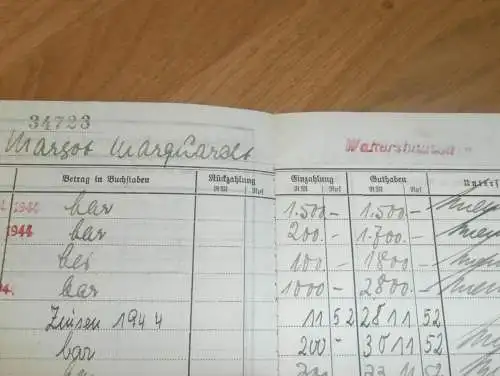 34723
Margot Marquardt Waltershausen
Betrag in Buchstaben Rückzahlung Einzahlung Guthaben
RM Rpf RM Rpf RM Rpf
1944 bar 1.500.- 1.500.-
1944 bar 200.- 1.700.-
100.- 1800.-
bar 1000.- 2800.-
Zinsen 1944 11 52 2811 52
bar 200.- 3011 52